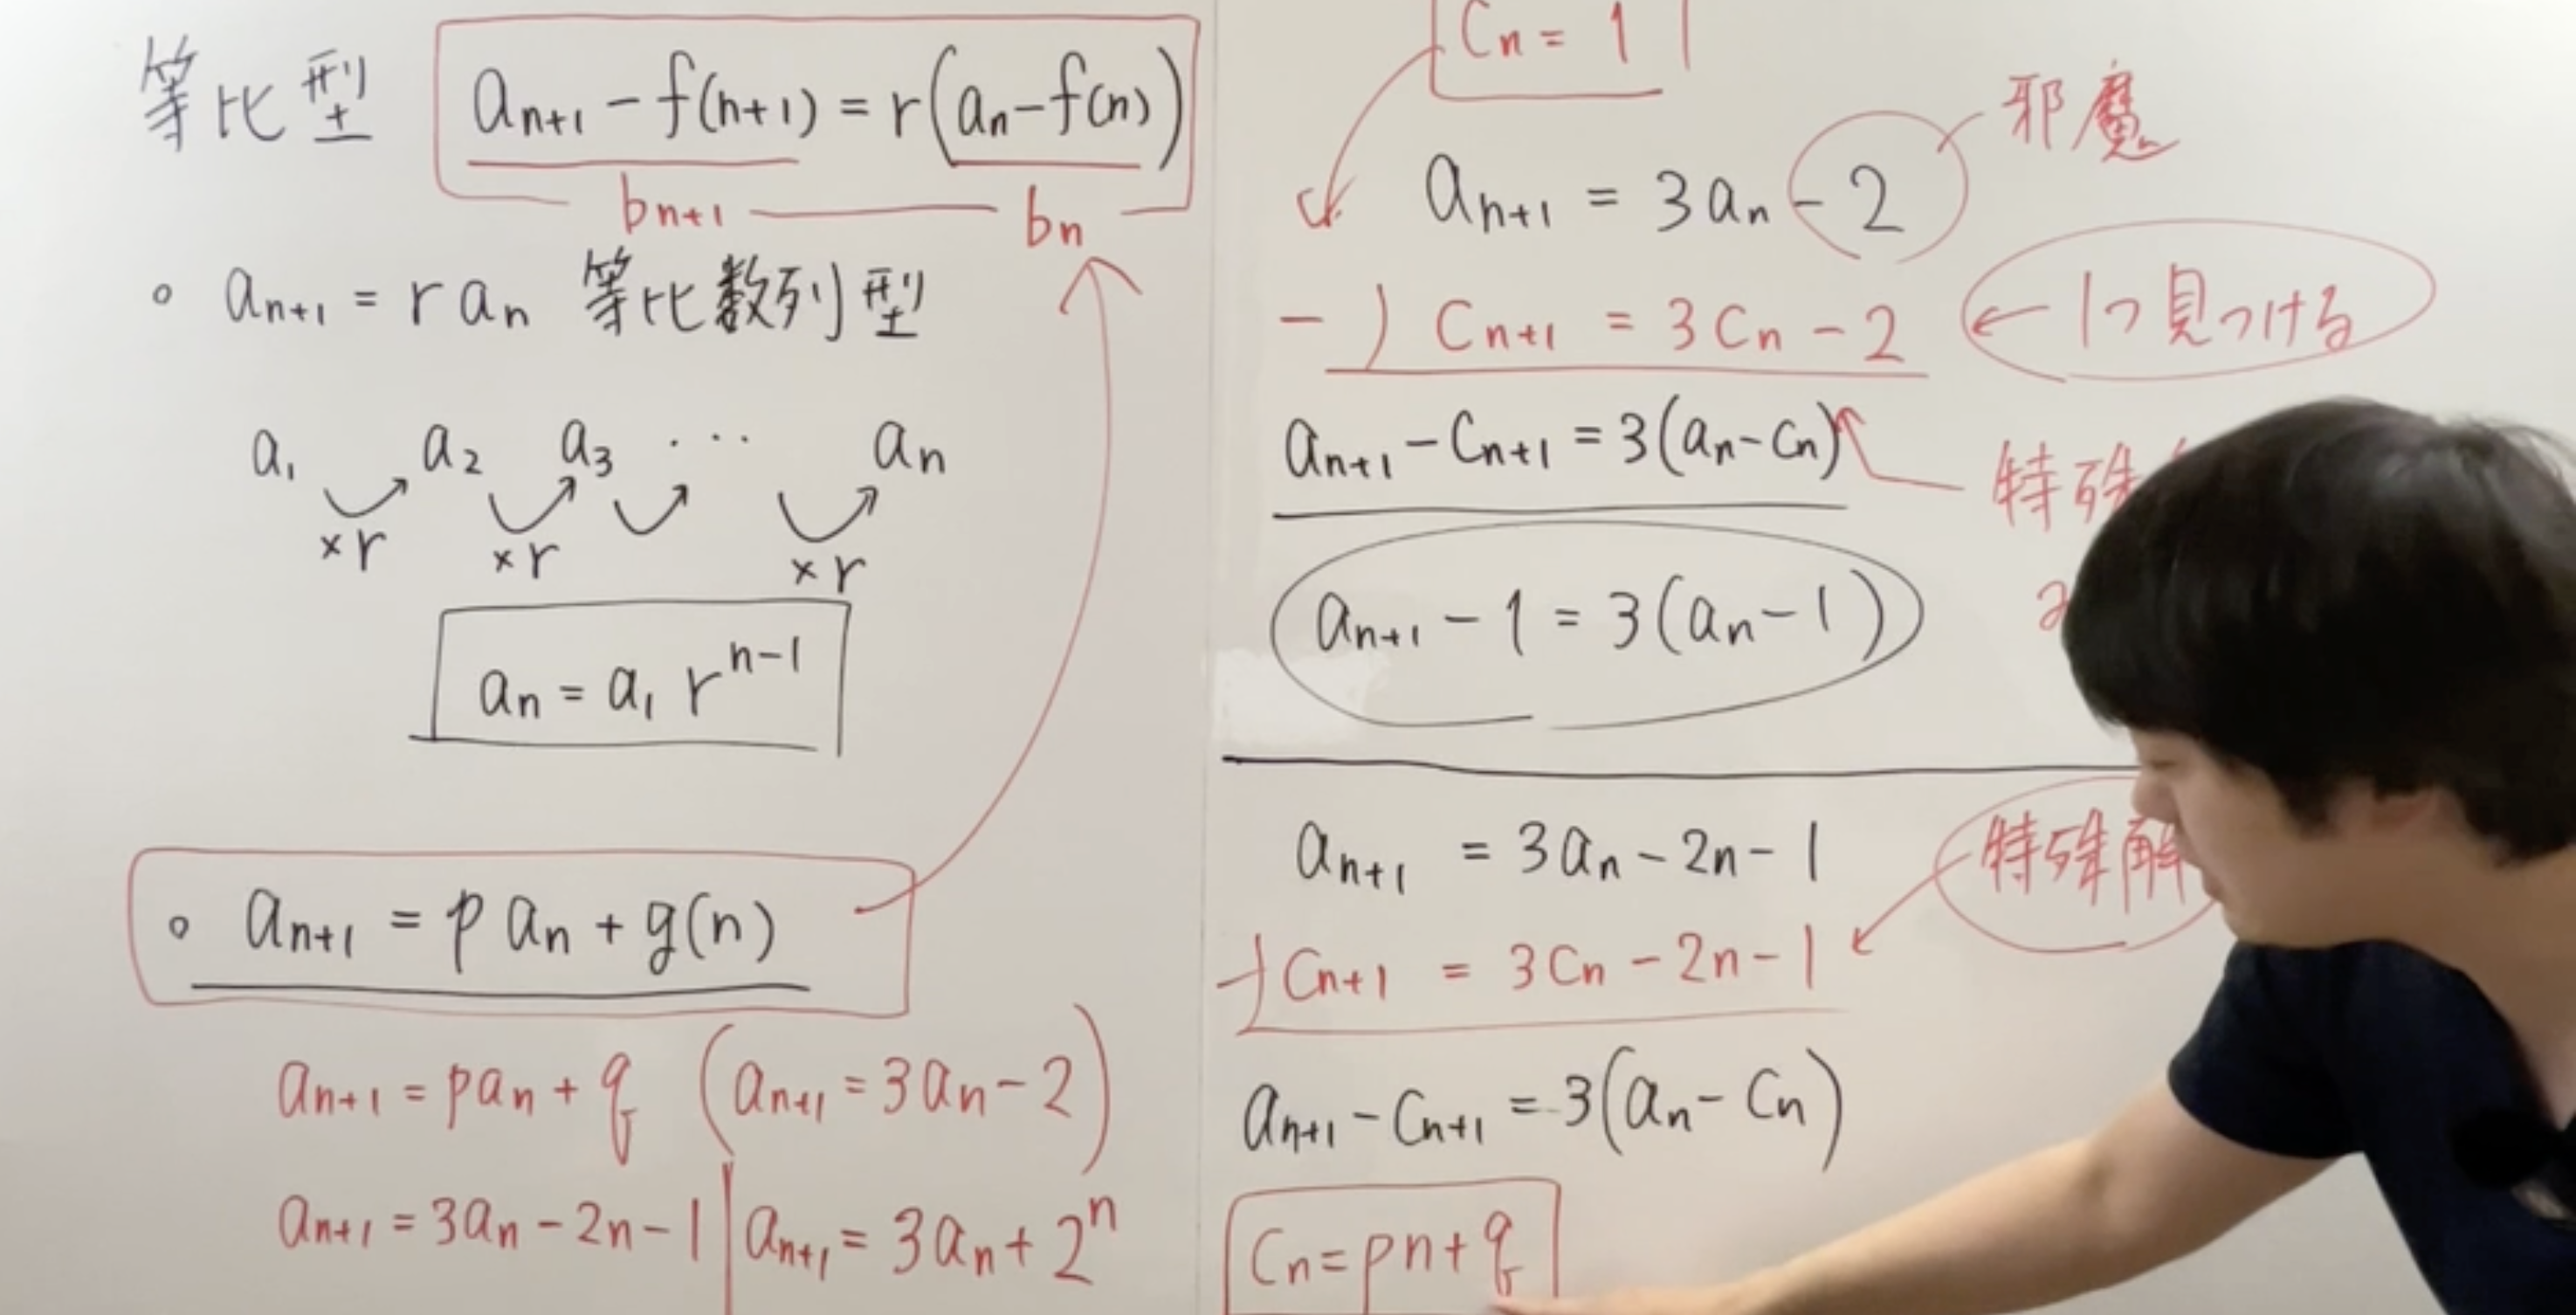 等比型 a_{n+1} - f(n+1) = r(a_n - f(n))
b_{n+1} b_n
○ a_{n+1} = r a_n 等比数列型
a_1 a_2 a_3 ... a_n
×r ×r ×r
a_n = a_1 r^{n-1}
○ a_{n+1} = p a_n + g(n)
a_{n+1} = p a_n + q (a_{n+1} = 3a_n - 2)
a_{n+1} = 3a_n - 2n - 1 | a_{n+1} = 3a_n + 2^n
C_n = 1
邪魔
a_{n+1} = 3a_n - 2
-) C_{n+1} = 3C_n - 2 ← 1つ見つける
a_{n+1} - C_{n+1} = 3(a_n - C_n)
特殊
a_{n+1} - 1 = 3(a_n - 1)
a_{n+1} = 3a_n - 2n - 1
特殊解
-) C_{n+1} = 3C_n - 2n - 1
a_{n+1} - C_{n+1} = 3(a_n - C_n)
C_n = pn + q